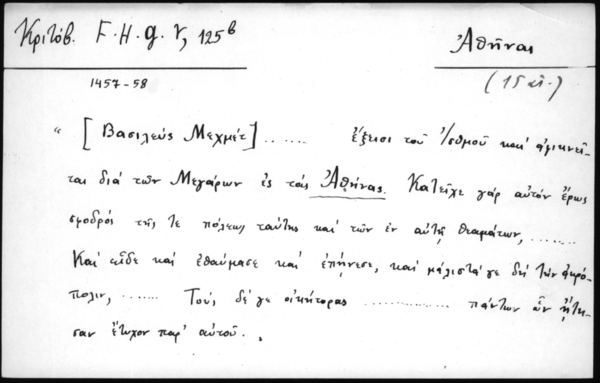 Κριτόβ. F.H.g. V, 125ᵇ
Ἀθῆναι
1457-58
(15 αἰ.)
“ [ Βασιλεύς Μεχμέτ ] ...... ἔξεισι τοῦ Ἰσθμοῦ καί ἀφικνεῖ-
ται διά τῶν Μεγάρων ἐς τάς Ἀθήνας. Κατεῖχε γάρ αὐτόν ἔρως
σφοδρός τῆς τε πόλεως ταύτης καί τῶν ἐν αὐτῇ θεαμάτων, .......
Καί εἶδε καί ἐθαύμασε καί ἐπῄνεσε, καί μάλιστά γε δή τήν ἀκρό-
πολιν, ....... Τούς δέ γε οἰκήτορας ............... πάντων ὧν ᾔτη-
σαν ἔτυχον παρ’ αὐτοῦ. „